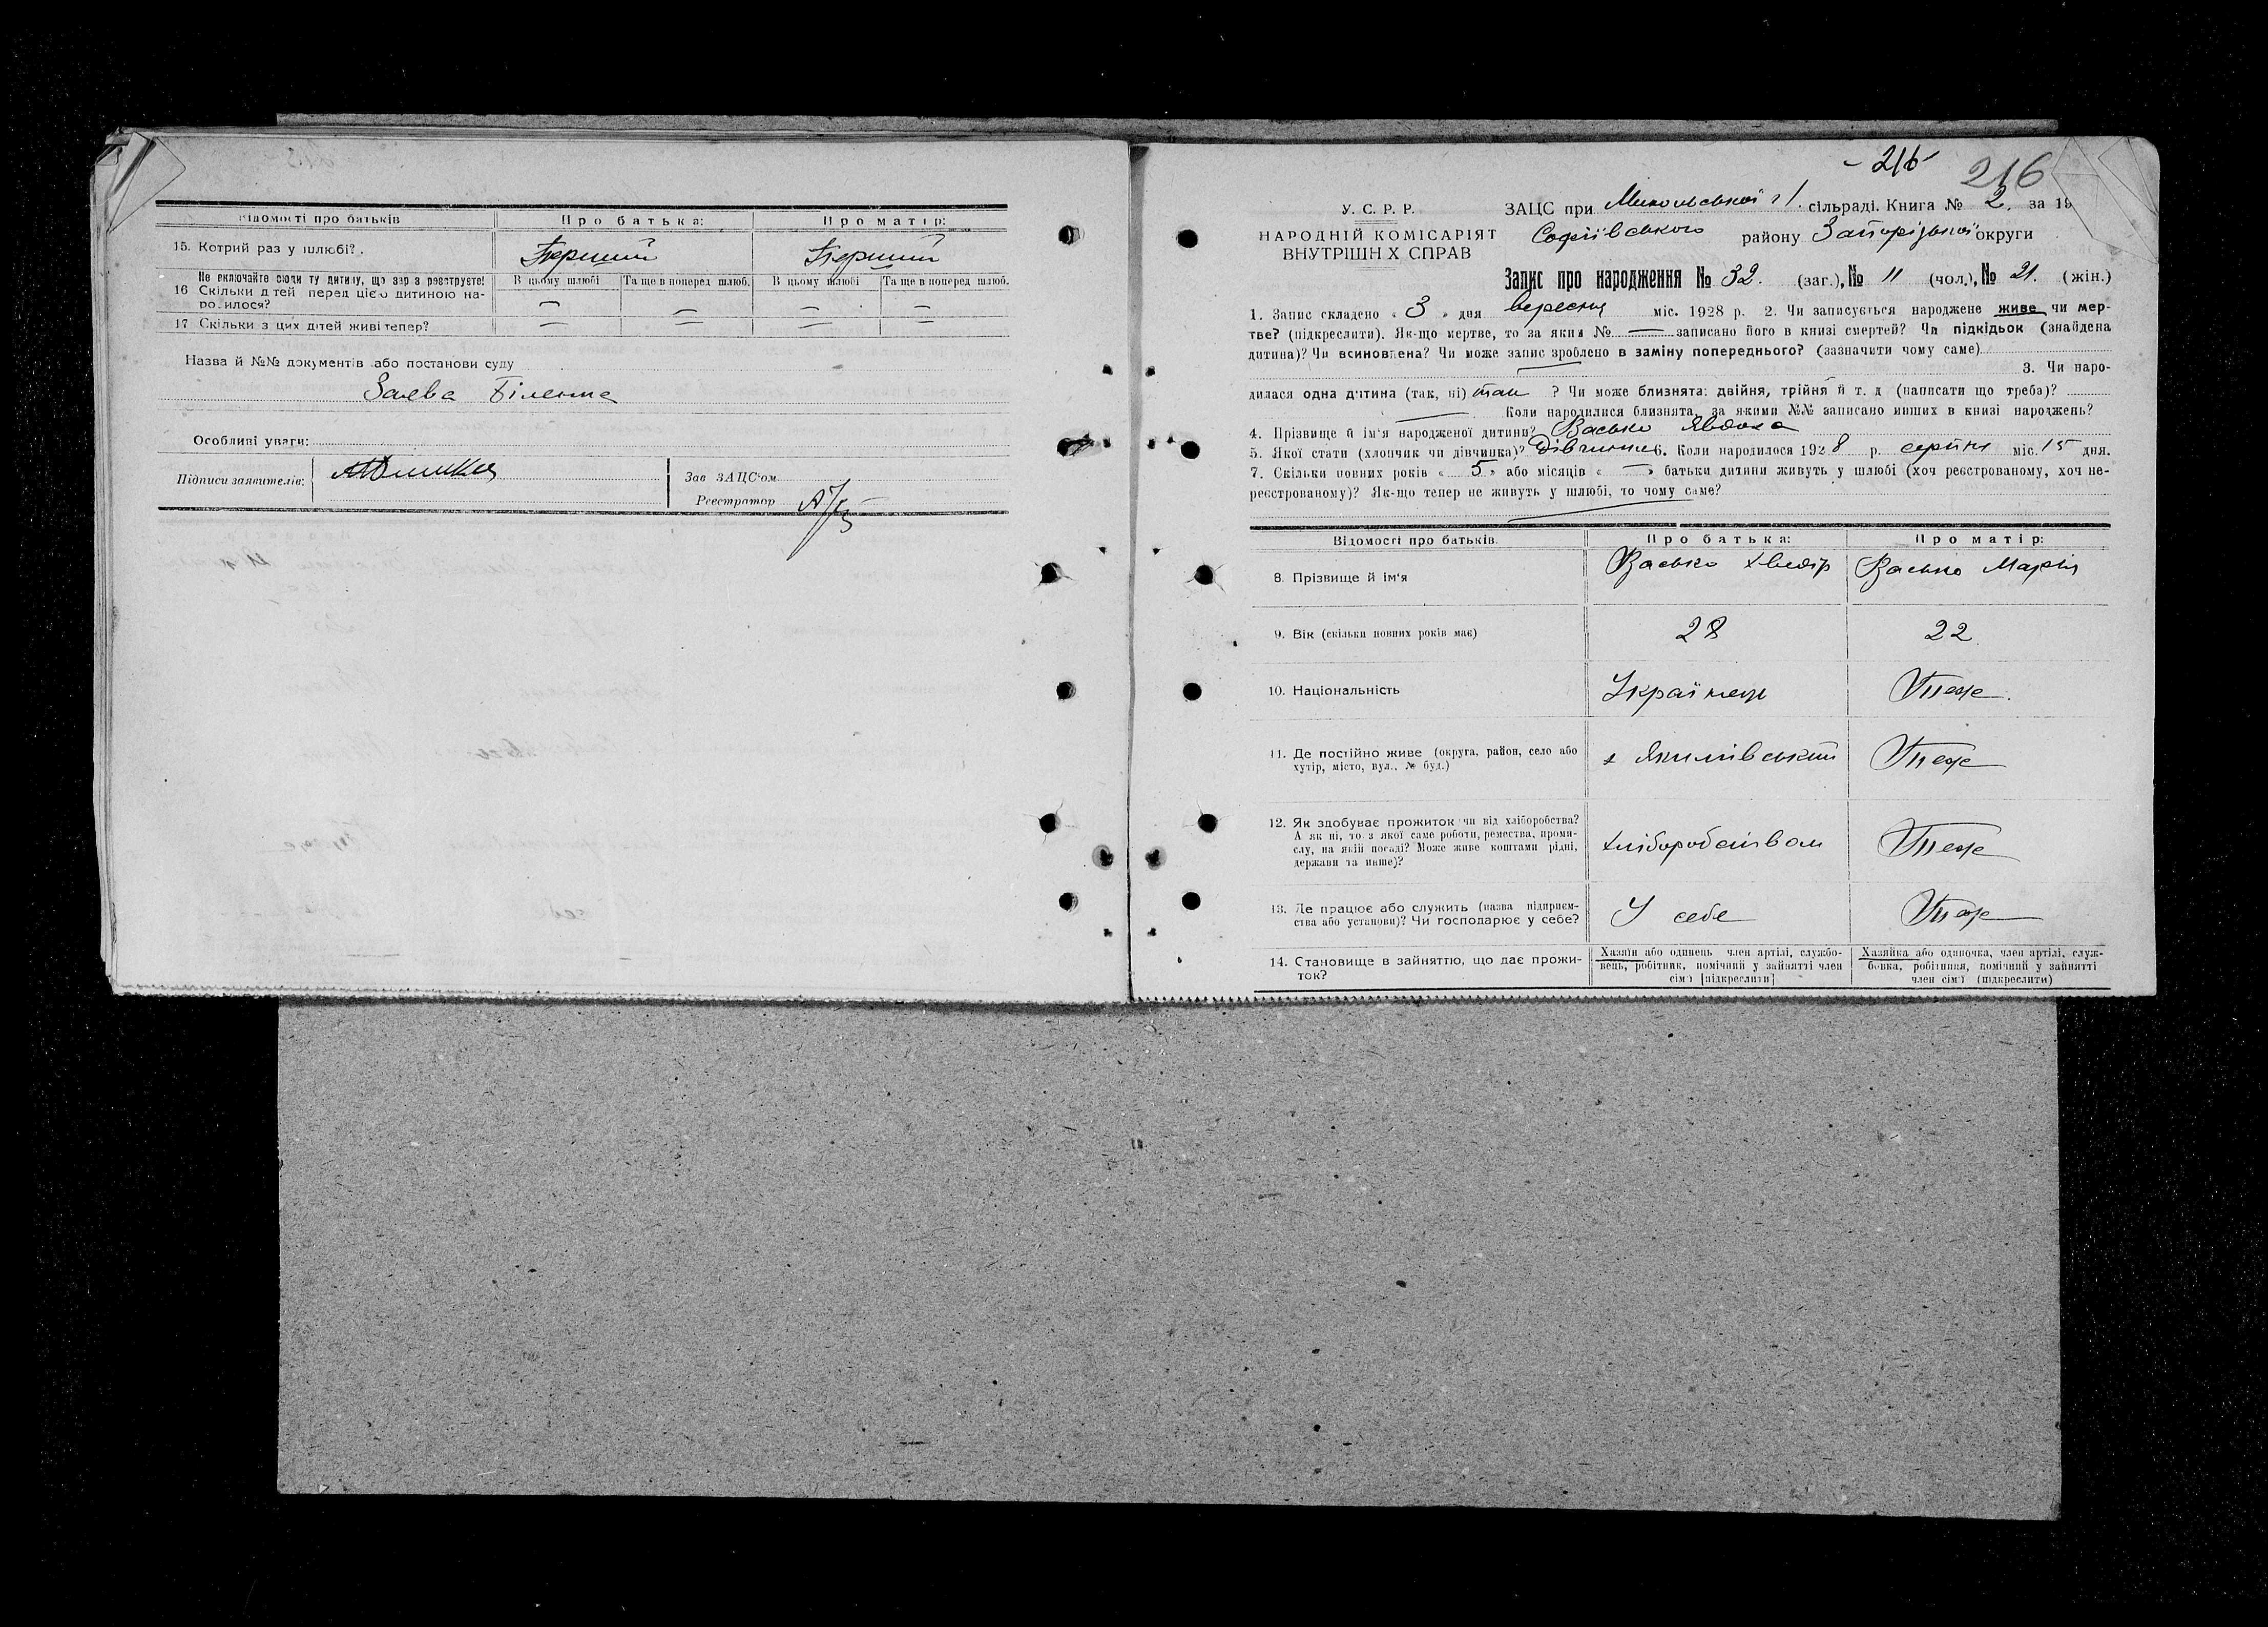 Відомості про батьків
Про батька:
Про матір:
15. Котрий раз у шлюбі?
Перший
Перший
Не включайте сюди ту дитину, що зараз реєструєте!
16 Скільки дітей перед цією дитиною на-
родилося?
В цьому шлюбі
Та ще в поперед шлюб.
В цьому шлюбі
Та ще в поперед шлюб.
— — — —
17 Скільки з цих дітей живі тепер?
— — — —
Назва й №№ документів або постанови суду
Заява
Особливі уваги:
Підписи заявителів:
Зав ЗАЦС'ом
Реєстратор
- 216 -
216
У. С. Р. Р.
НАРОДНІЙ КОМІСАРІЯТ
ВНУТРІШНІХ СПРАВ
ЗАЦС при сільраді. Книга № 2. за 19
Софіївського району Запорізької округи
Запис про народження № 32. (заг.), № 11 (чол.), № 21. (жін.)
1. Запис складено « 3 » дня вересня міс. 1928 р. 2. Чи записується народжене живе чи мер-
тве? (підкреслити). Як-що мертве, то за яким № — записано його в книзі смертей? Чи підкідьок (знайдена
дитина)? Чи всиновлена? Чи може запис зроблено в заміну попереднього? (зазначити чому саме)
3. Чи наро-
дилася одна дитина (так, ні) так ? Чи може близнята: двійня, трійня й т. д (написати що треба)?
— Коли народилися близнята, за якими №№ записано инших в книзі народжень?
4. Прізвище й ім'я народженої дитини? Васько Явдоха
5. Якої стати (хлопчик чи дівчинка)? Дівчинка 6. Коли народилося 1928 р. серпня міс. 15 дня.
7. Скільки повних років « 5 » або місяців « — » батьки дитини живуть у шлюбі (хоч реєстрованому, хоч не-
реєстрованому)? Як-що тепер не живуть у шлюбі, то чому саме?
Відомості про батьків.
Про батька:
Про матір:
8. Прізвище й ім'я
Васько Хведір
Васько Марія
9. Вік (скільки повних років має)
28
22
10. Національність
Українець
Теж
11. Де постійно живе (округа, район, село або
хутір, місто, вул., № буд.)
х Якимівський
Теж
12. Як здобуває прожиток чи від хліборобства?
А як ні, то з якої саме роботи, ремества, проми-
слу, на якій посаді? Може живе коштами рідні,
держави та инше)?
хліборобством
Теж
13. Де працює або служить (назва підприєм-
ства або установи)? Чи господарює у себе?
У себе
Теж
14. Становище в зайняттю, що дає прожи-
ток?
Хазяїн або одинець член артілі, службо-
вець, робітник, помічний у зайнятті член
сім'ї [підкреслити]
Хазяйка або одиночка, член артілі, служ-
бовка, робітниця, помічний у зайнятті
член сім'ї (підкреслити)